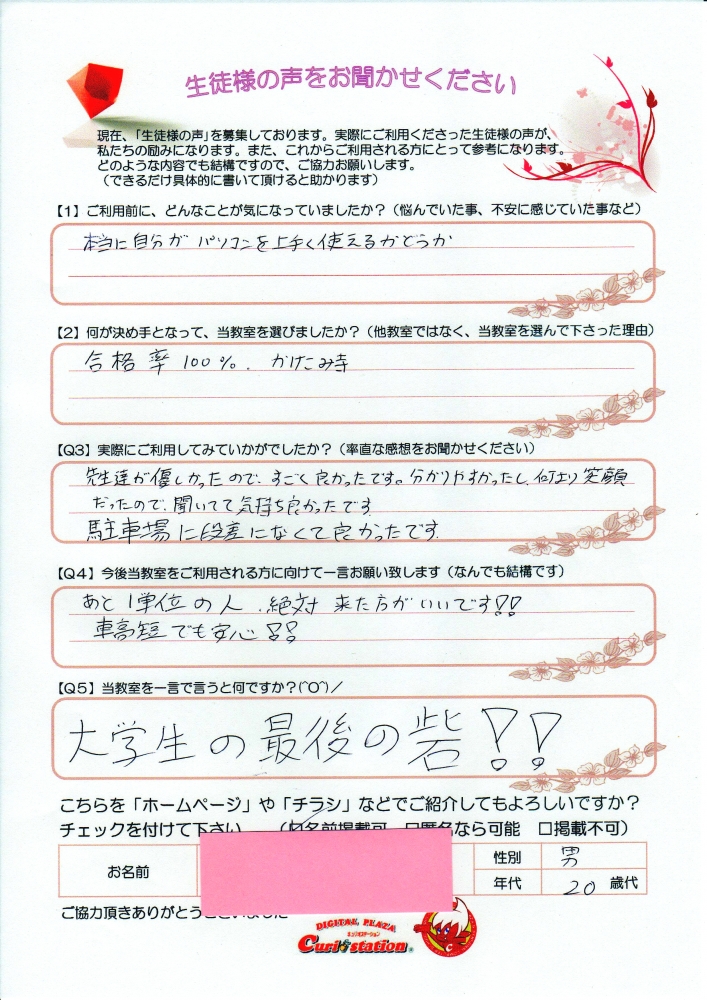 生徒様の声をお聞かせください
現在、「生徒様の声」を募集しております。実際にご利用くださった生徒様の声が、
私たちの励みになります。また、これからご利用される方にとって参考になります。
どのような内容でも結構ですので、ご協力お願いします。
（できるだけ具体的に書いて頂けると助かります）
【1】ご利用前に、どんなことが気になっていましたか？（悩んでいた事、不安に感じていた事など）
本当に自分がパソコンを上手く使えるかどうか
【2】何が決め手となって、当教室を選びましたか？（他教室ではなく、当教室を選んで下さった理由）
合格率100%. かけこみ寺
【Q3】実際にご利用してみていかがでしたか？（率直な感想をお聞かせください）
先生達が優しかったので、すごく良かったです。分かりやすかったし、何より笑顔
だったので、聞いてて気持ち良かったです
駐車場に段差になくて良かったです.
【Q4】今後当教室をご利用される方に向けて一言お願い致します（なんでも結構です）
あと1単位の人、絶対来た方がいいです!!
車高短でも安心!!
【Q5】当教室を一言で言うと何ですか？(^O^)／
大学生の最後の砦!!
こちらを「ホームページ」や「チラシ」などでご紹介してもよろしいですか？
チェックを付けて下さい （☑名前掲載可 □匿名なら可能 □掲載不可）
お名前 性別 男
年代 20 歳代
ご協力頂きありがとうございました
DIGITAL PLAZA
Curio station